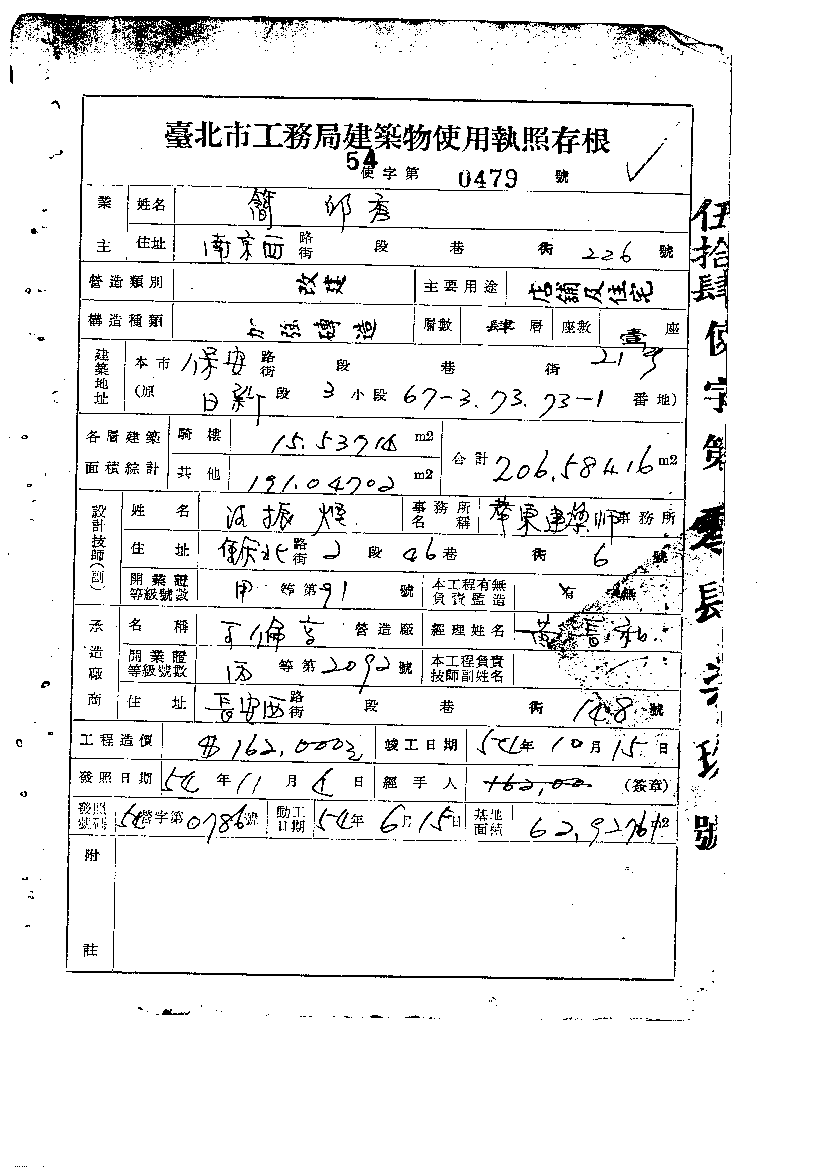 臺北市工務局建築物使用執照存根
54使字第0479號
業主 姓名 簡 邱 秀
住址 南京西路街 段 巷 衖 226 號
營造類別 改建 主要用途 店舖及住宅
構造種類 加強磚造 層數 肆 層 座數 壹 座
建築地址 本市 保安路街 段 巷 衖 21號
(原 日新 段 3 小段 67-3.73.73-1 番地)
各層建築面積綜計 騎樓 15.53714 m2 合計 206.58416 m2
其他 191.04702 m2
設計技師(副) 姓名 振煌 事務所名稱 華東建築師事務所
住址 重慶北路街 2 段 46 巷 衖 6 號
開業證等級號數 甲 等第 91 號 本工程有無負責監造 有 無
承造廠商 名稱 營造廠 經理姓名 黃
開業證等級號數 丙 等第 2092 號 本工程負責技師副姓名
住址 長安西路街 段 巷 衖 148 號
工程造價 $162,000 竣工日期 54年10月15日
發照日期 54年11月4日 經手人 162,00 (簽章)
發照號碼 54營字第0786號 動工日期 54年6月15日 基地面積 62.9276 m2
附註
伍拾肆使字第零肆柒玖號